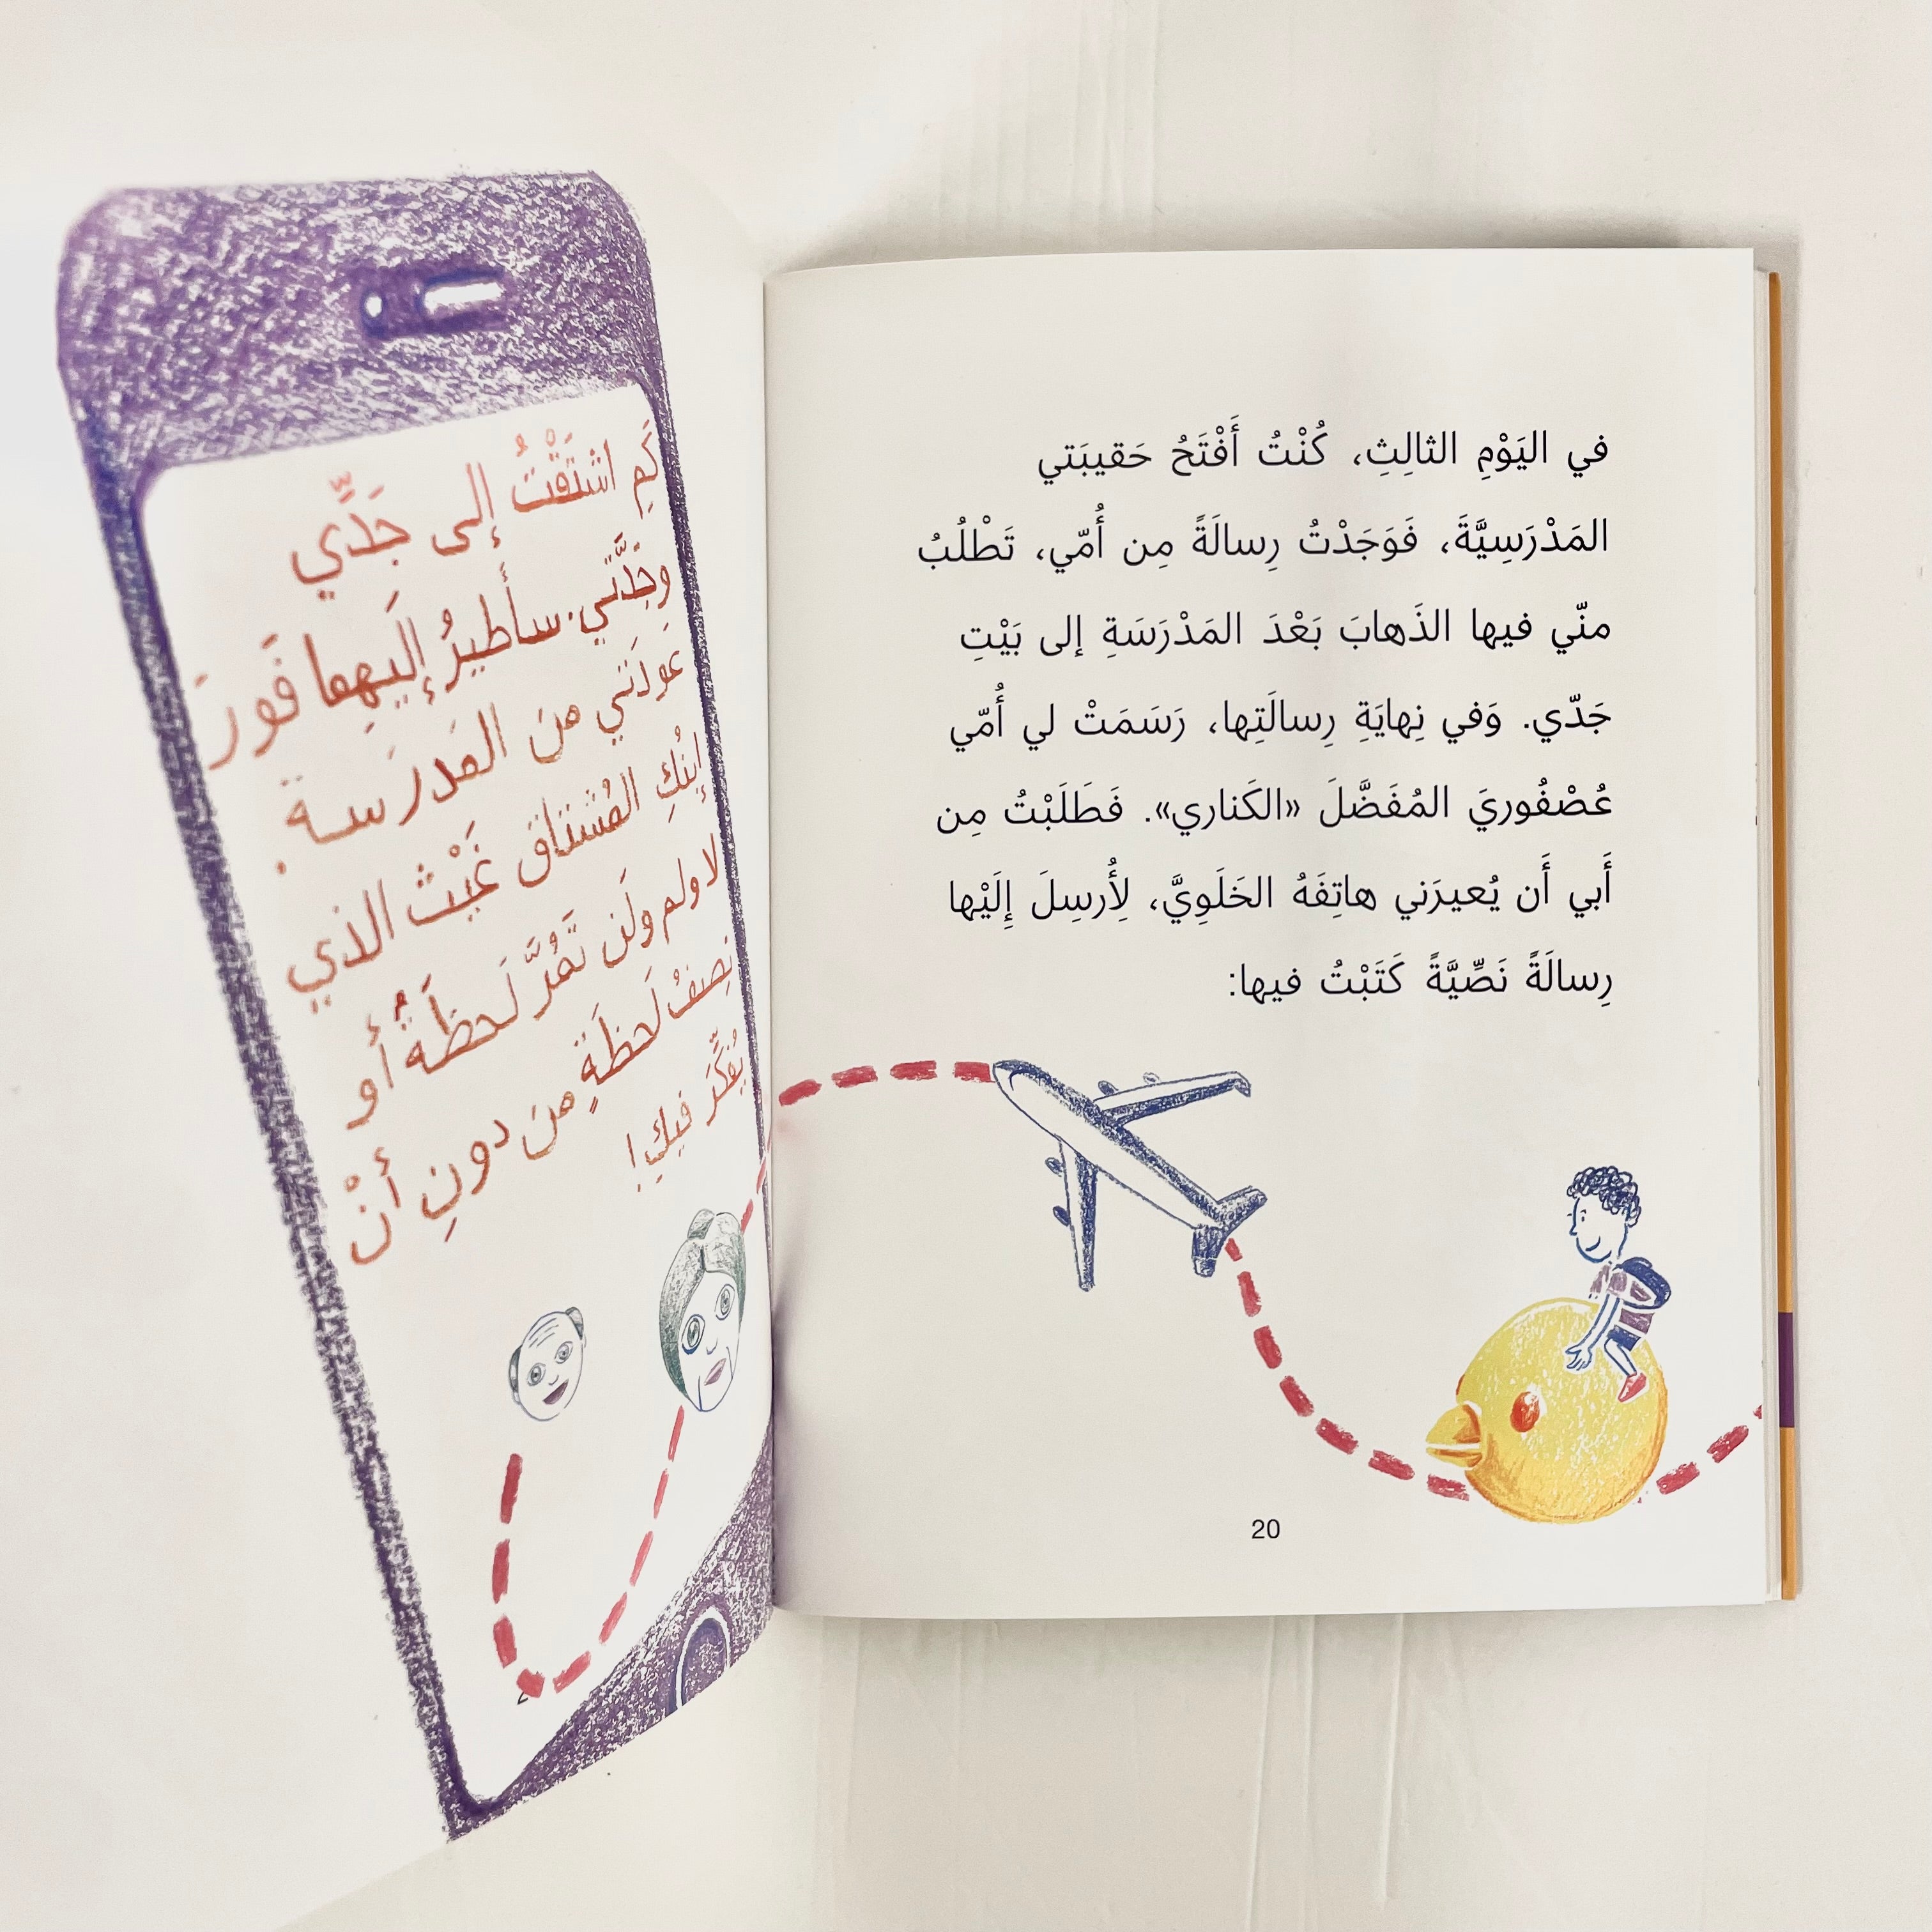 في اليَوْمِ الثالِثِ، كُنْتُ أَفْتَحُ حَقيبَتي
المَدْرَسِيَّةَ، فَوَجَدْتُ رِسالَةً مِن أُمّي، تَطْلُبُ
منّي فيها الذَهابَ بَعْدَ المَدْرَسَةِ إلى بَيْتِ
جَدّي. وَفي نِهايَةِ رِسالَتِها، رَسَمَتْ لي أُمّي
عُصْفُوريَ المُفَضَّلَ «الكَناري». فَطَلَبْتُ مِن
أَبي أَن يُعيرَني هاتِفَهُ الخَلَوِيَّ، لِأُرسِلَ إِلَيْها
رِسالَةً نَصِّيَّةً كَتَبْتُ فيها:
20
كَم اشتَقْتُ إلى جَدِّي
وجَدَّتي. سأَطيرُ إلَيهِما فَورَ
عَودَتي من المَدرَسة.
إبنُكِ المُشتاق غَيْث الذي
لا ولم ولَن تَمُرَّ لَحظَةٌ أو
نِصفُ لَحظَةٍ من دونِ أنْ
يُفَكِّرَ فيكِ!